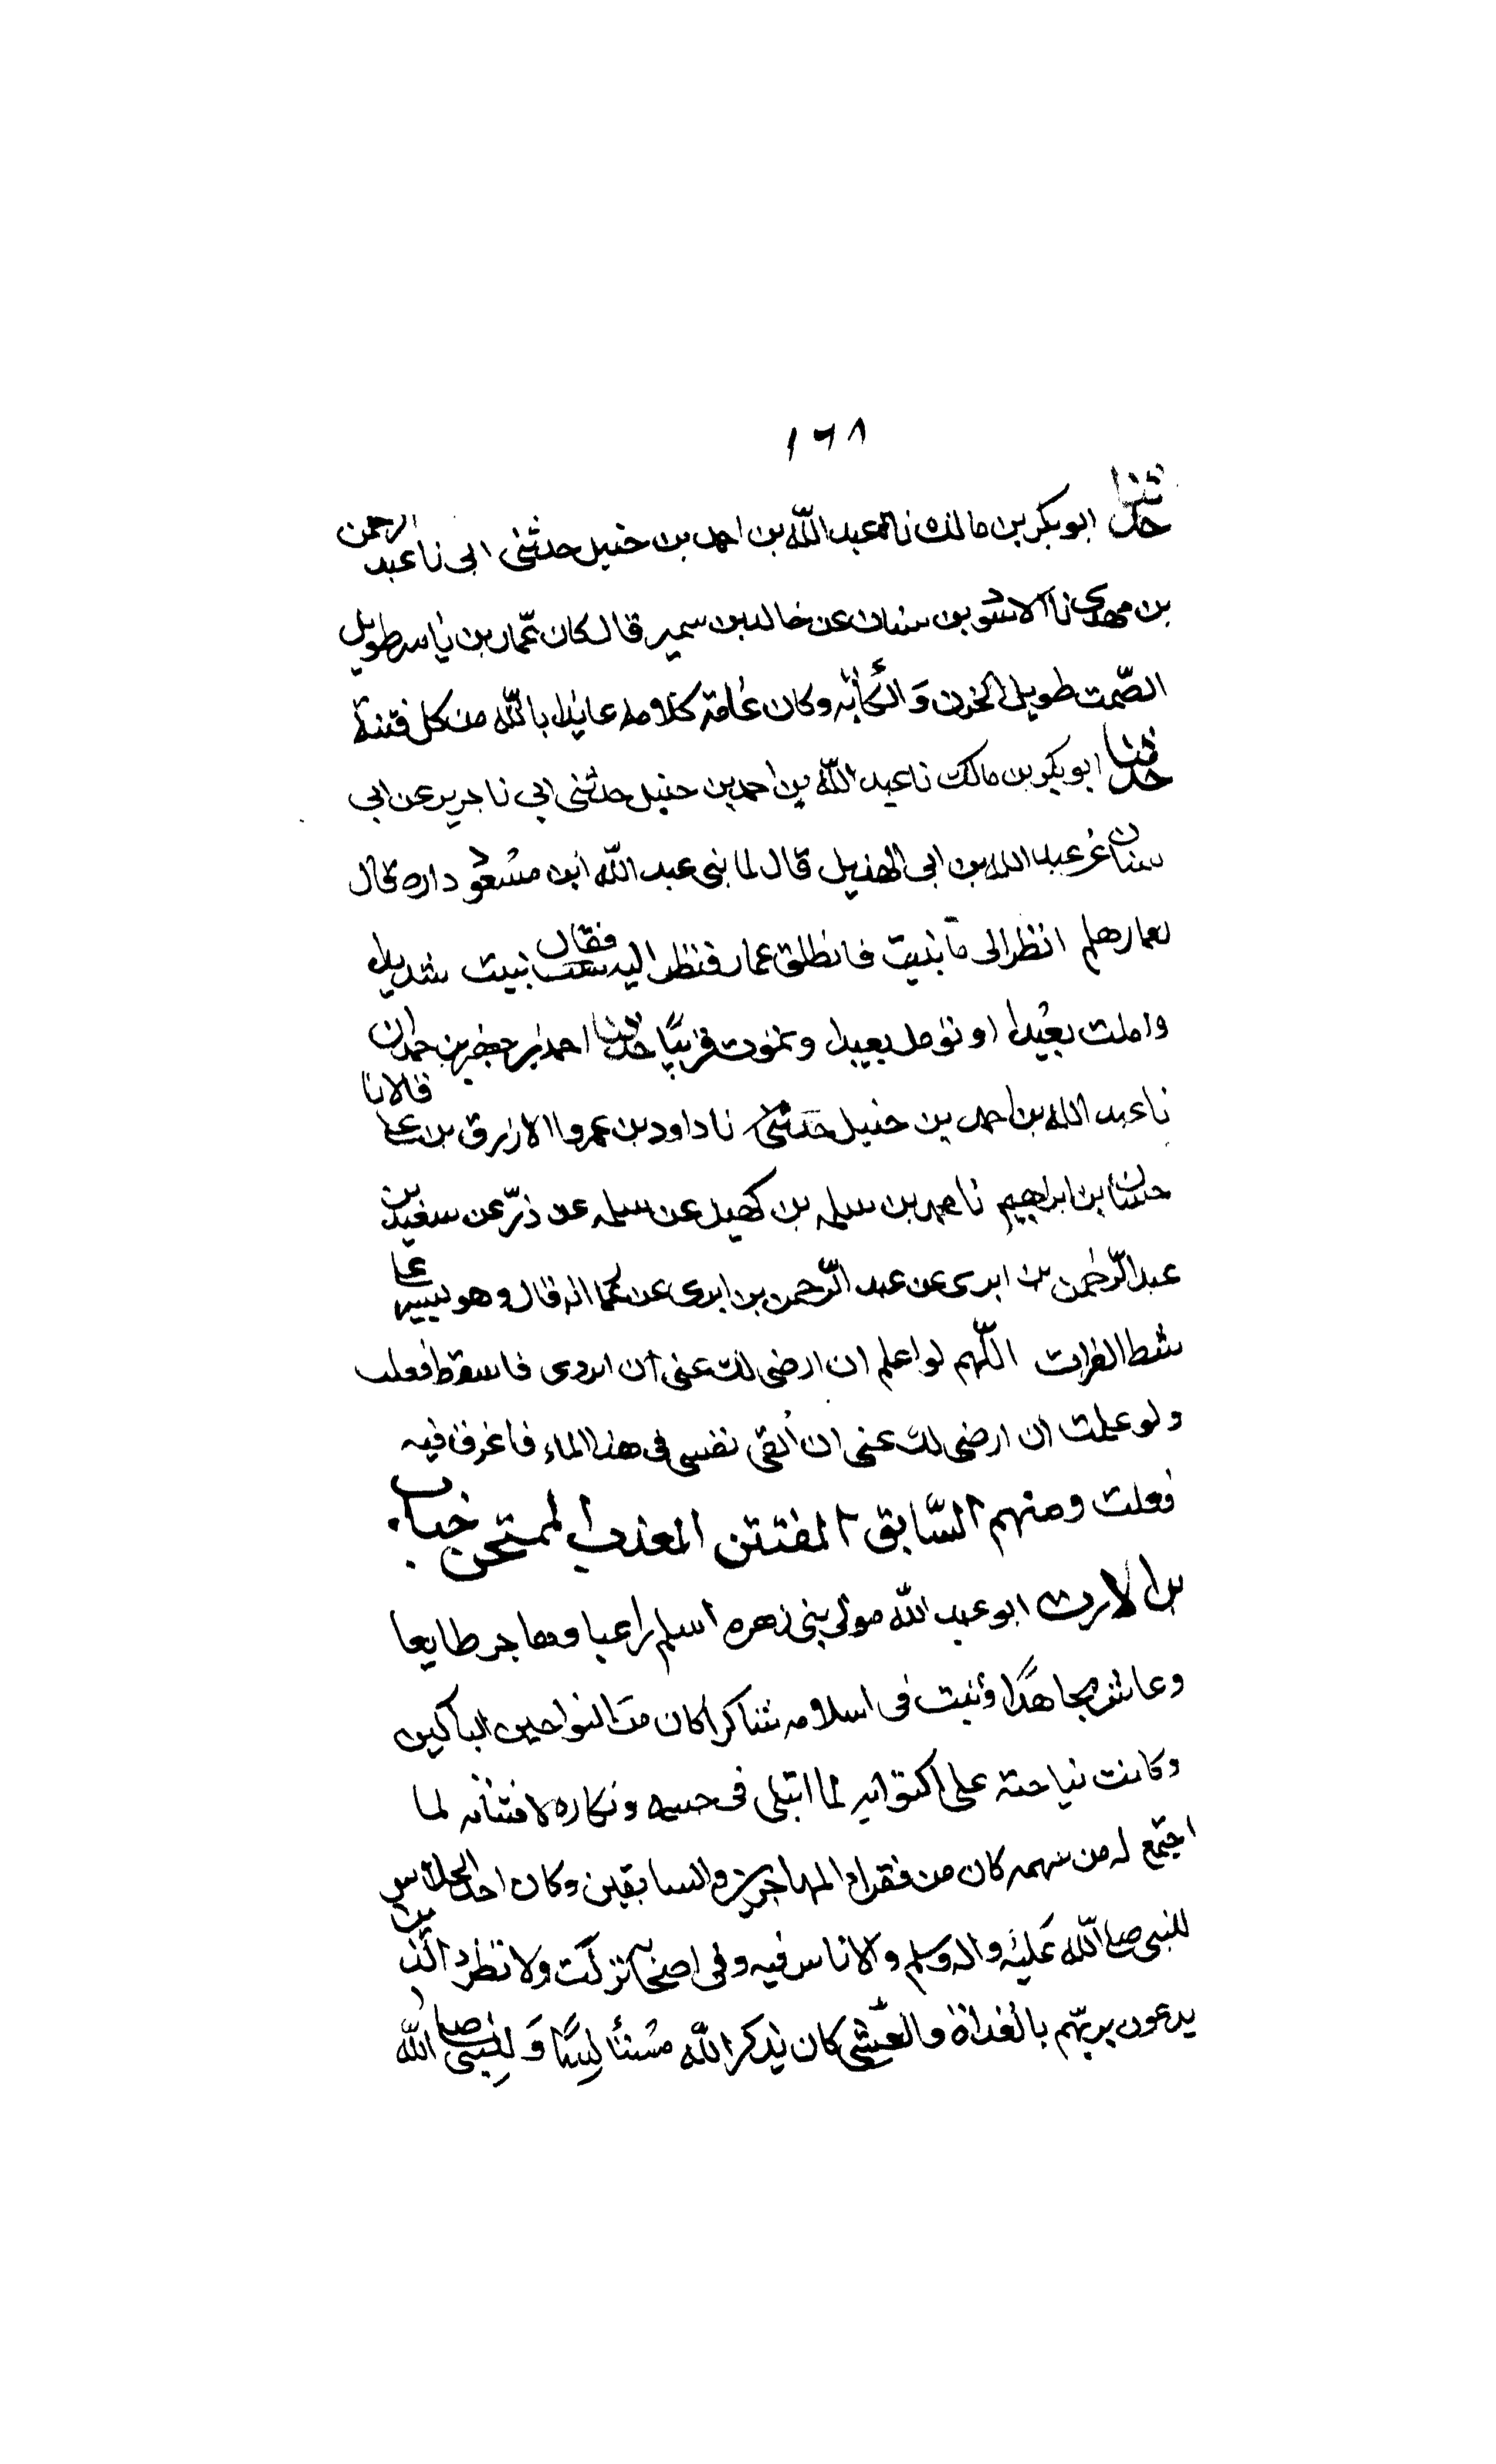 ١٦٨
حدثنا ابو بكر بن مالك نا عبد الله بن احمد بن حنبل حدثنى ابى نا عبد الرحمن
بن مهدى نا الاسود بن سنان عن خالد بن سمير قال كان عمّار بن ياسر طويل
الصّمت طويل الحزن وَالكأبه وكان عامة كلامه عايذا بالله من كل فتنة
حدثنا ابو بكر بن مالك نا عبد الله بن احمد بن حنبل حدثنى ابى نا جرير عن ابى
سنان عن عبد الله بن ابى الهذيل قال لما بنى عبد الله ابن مسعود داره قال
لعمار هلم انظر الى ما بنيت فانطلق عمار فنظر اليه فقال بنيت شديدا
واملت بعيدا او تؤمل بعيدا وتموت قريبًا حدثنا احمد بن جعفر بن حمدان
نا عبد الله بن احمد بن حنبل حدثنى نا داود بن عمرو الازرق بن على قالا نا
حسان بن ابراهيم نا محمد بن سلمه بن كهيل عن سلمه عن ذرّ عن سعيد بن
عبد الرّحمن بن ابزى عن عبد الرّحمن بن ابزى عن عمار انه قال وهو يسير على
شط الفرات اللّهم لو اعلم ان ارضى لك عنى ان اتردى فاسقط فعلت
ولو علمت ان ارضى لك عنى ان ألقى نفسى فى هذا الماء فاغرق فيه
فعلت ومنهم السّابق المفتتن المعذب الممتحن خباب
بن الارت ابو عبد الله مولى بنى زهره اسلم راغبا وهاجر طايعا
وعاش مجاهدًا وثبت فى اسلامه شاكرا كان من النواحين الباكين
وكانت نياحته على اكتوائه لما ابتلى فى جسمه وبكاره لافتتانه لما
اجتمع له من سهمه كان من فقراء المهاجرين والسابقين وكان احد الجلاس
للنبى صلى الله عليه واله وسلم والاناس فيه وفى اصحابه نزلت ولا تطرد الذين
يدعون ربّهم بالغداة والعشى كان بذكر الله مستأنسا وَللنبى صلى الله